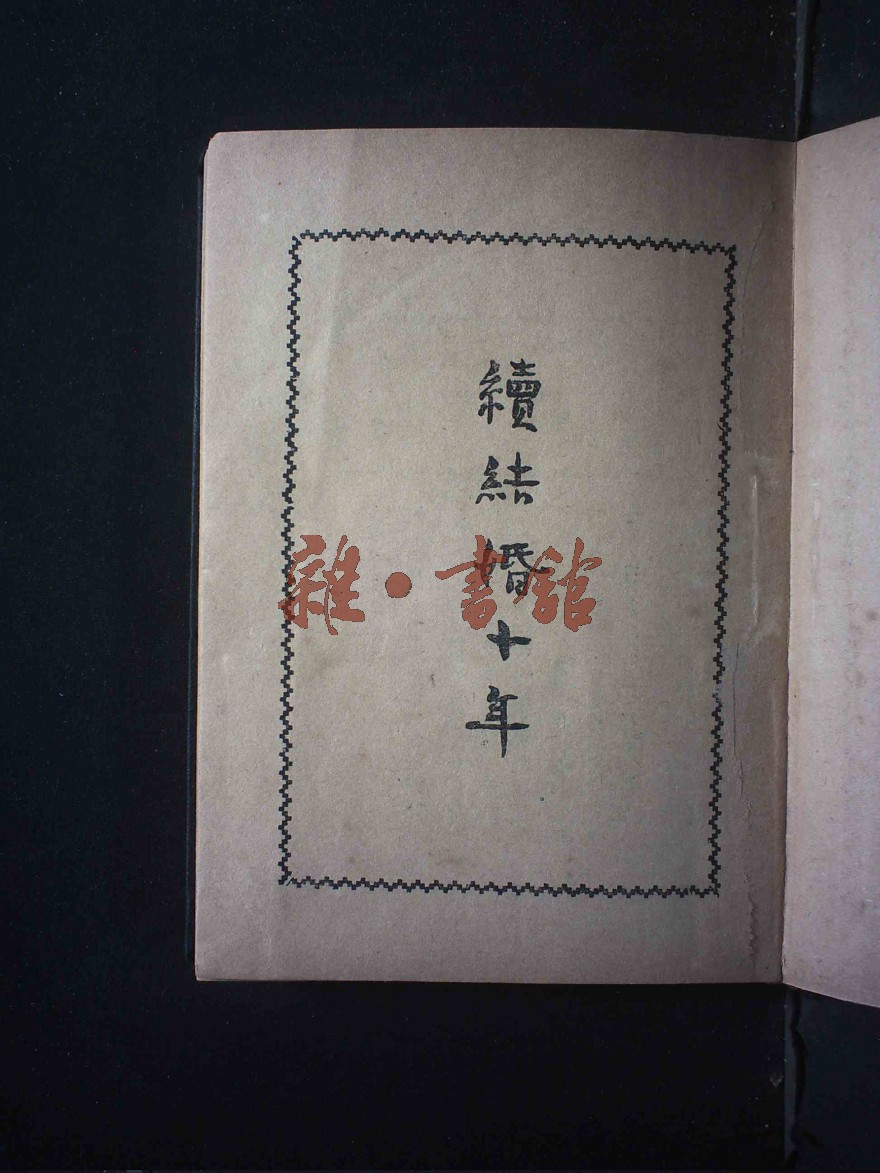 續結婚十年
雜·書館